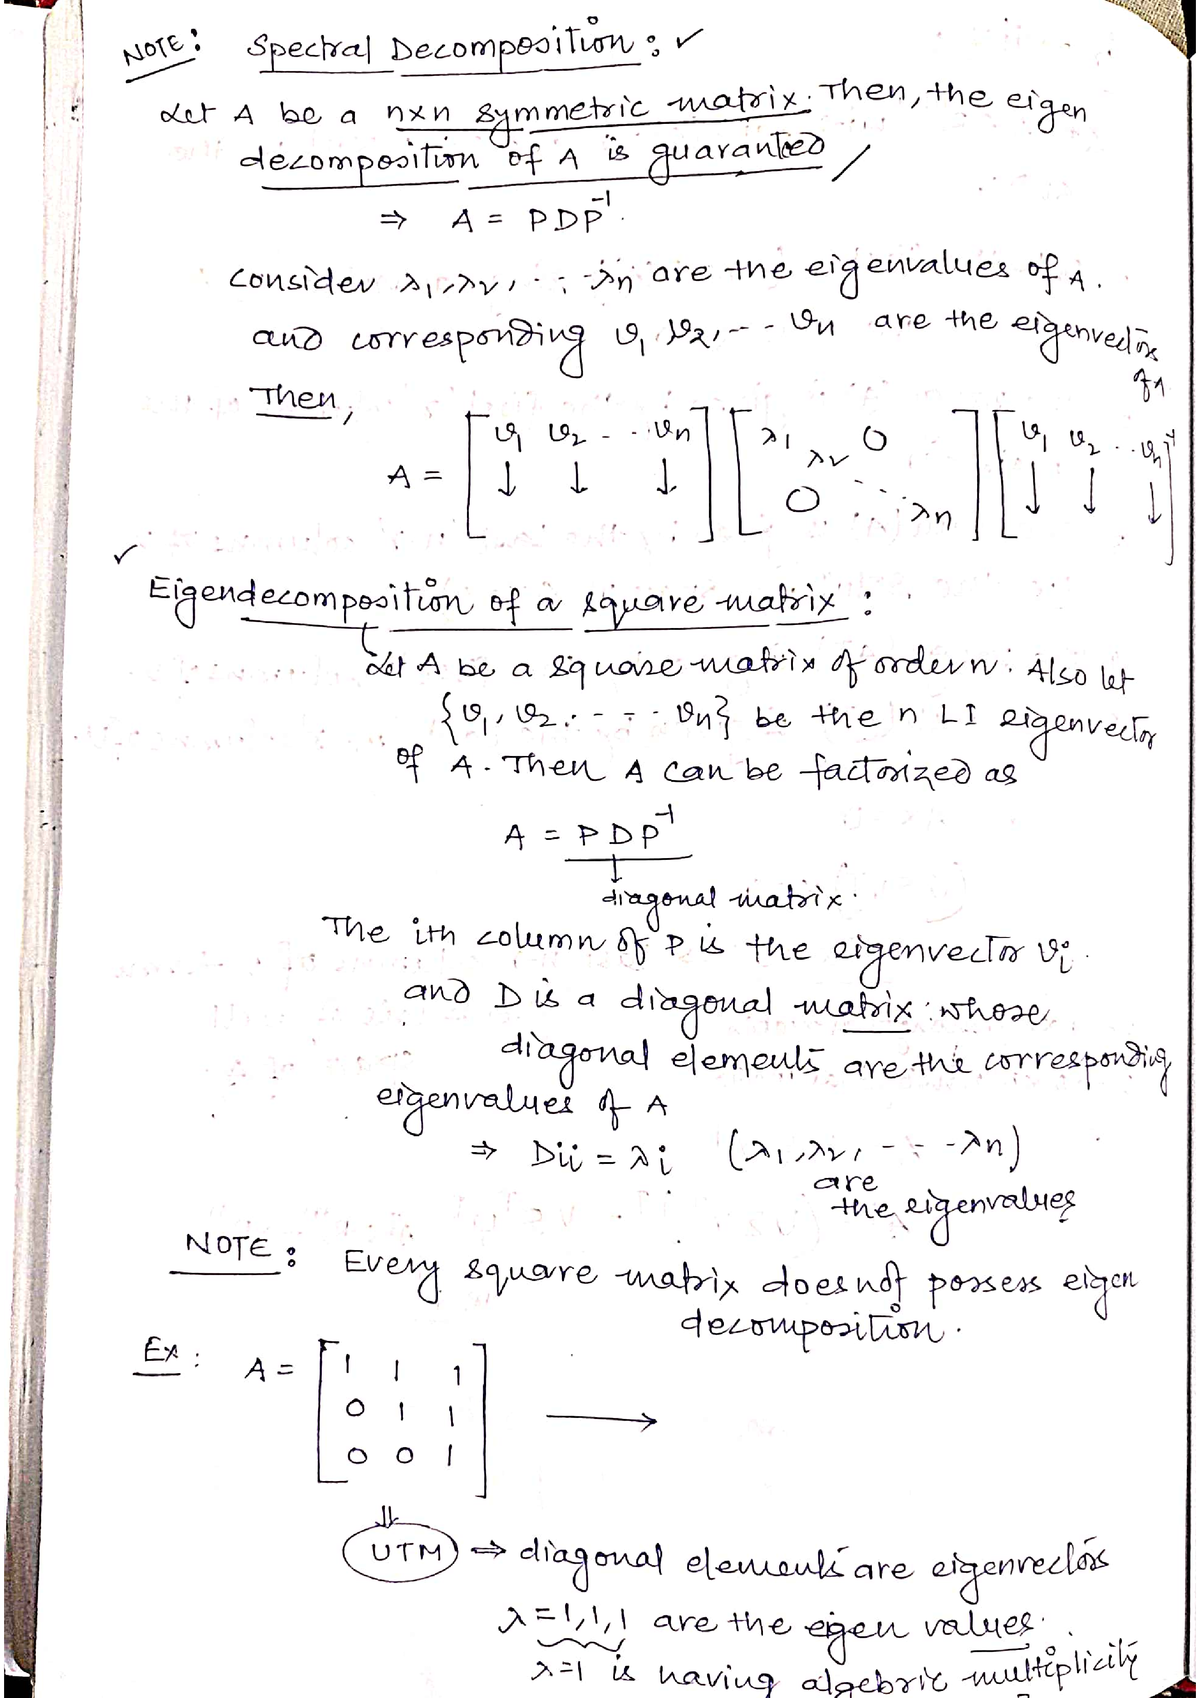 NOTE: Spectral Decomposition: ✓
Let A be a n×n symmetric matrix. Then, the eigen
decomposition of A is guaranteed
⇒ A = PDP⁻¹.
consider λ1, λ2, . . . λn are the eigenvalues of A.
and corresponding v1, v2, - - - vn are the eigenvectors
of A
Then,
A = [v1 v2 - . . vn] [λ1 λ2 . . . λn] [v1 v2 . . vn]⁻¹
↓ ↓ ↓ 0 0 ↓ ↓ ↓
✓
Eigendecomposition of a square matrix:
Let A be a square matrix of order n. Also let
{v1, v2, - - - - vn} be the n LI eigenvector
of A. Then A can be factorized as
A = PDP⁻¹
↓
diagonal matrix.
The ith column of P is the eigenvector vi.
and D is a diagonal matrix whose
diagonal elements are the corresponding
eigenvalues of A
⇒ Dii = λi (λ1, λ2, - - - λn)
are
the eigenvalues
NOTE: Every square matrix does not possess eigen
decomposition.
Ex: A = [1 1 1
0 1 1
0 0 1] →
⇓
UTM ⇒ diagonal elements are eigenvectors
λ = 1,1,1 are the eigen values.
λ=1 is having algebric multiplicity